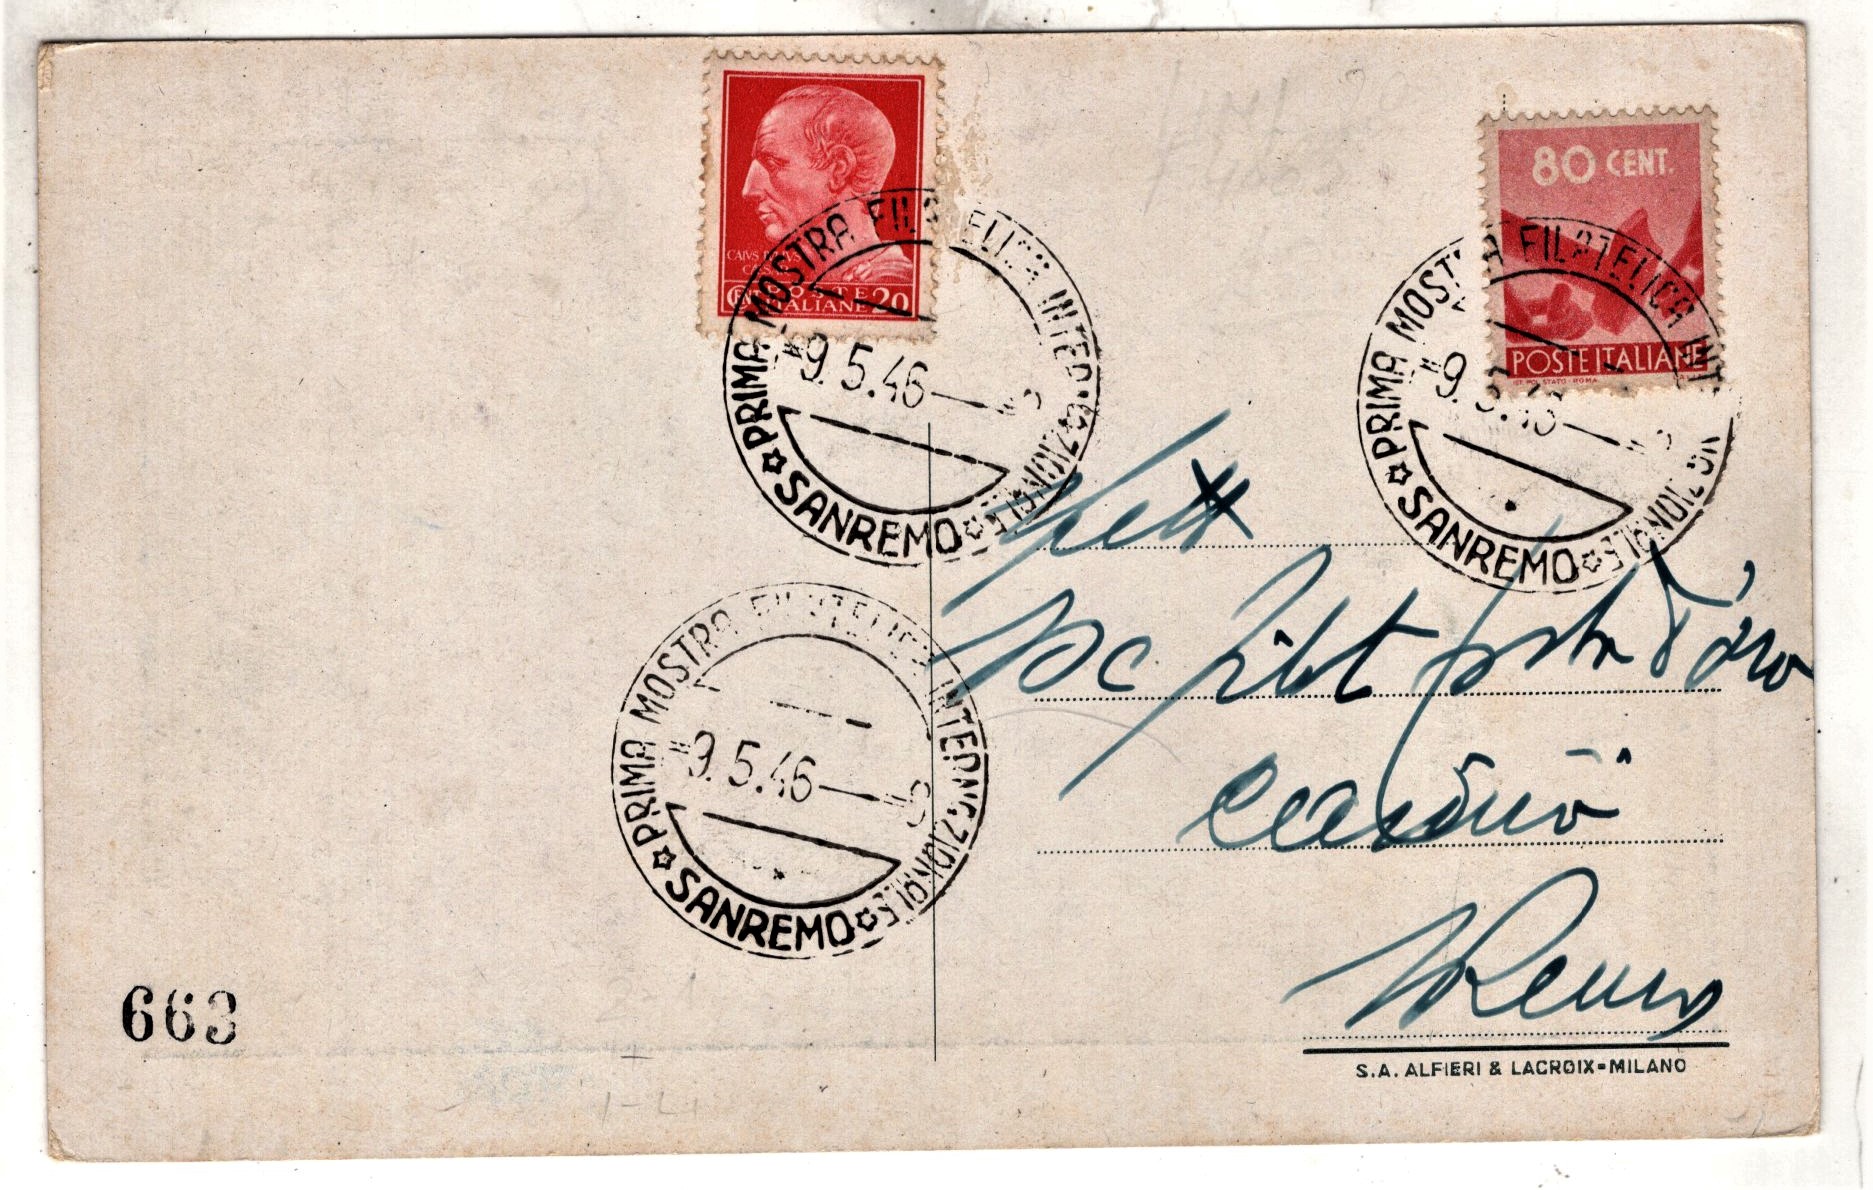 CAIVS IVLIVS
CAESAR
CENT POSTE ITALIANE 20
80 CENT.
POSTE ITALIANE
IST. POL. STATO - ROMA
PRIMA MOSTRA FILATELICA INTERNAZIONALE
9.5.46
SANREMO
PRIMA MOSTRA FILATELICA INTERNAZIONALE
9.5.46
SANREMO
PRIMA MOSTRA FILATELICA INTERNAZIONALE
9.5.46
SANREMO
Spett
Casinò
SRemo
663
S.A. ALFIERI & LACROIX-MILANO